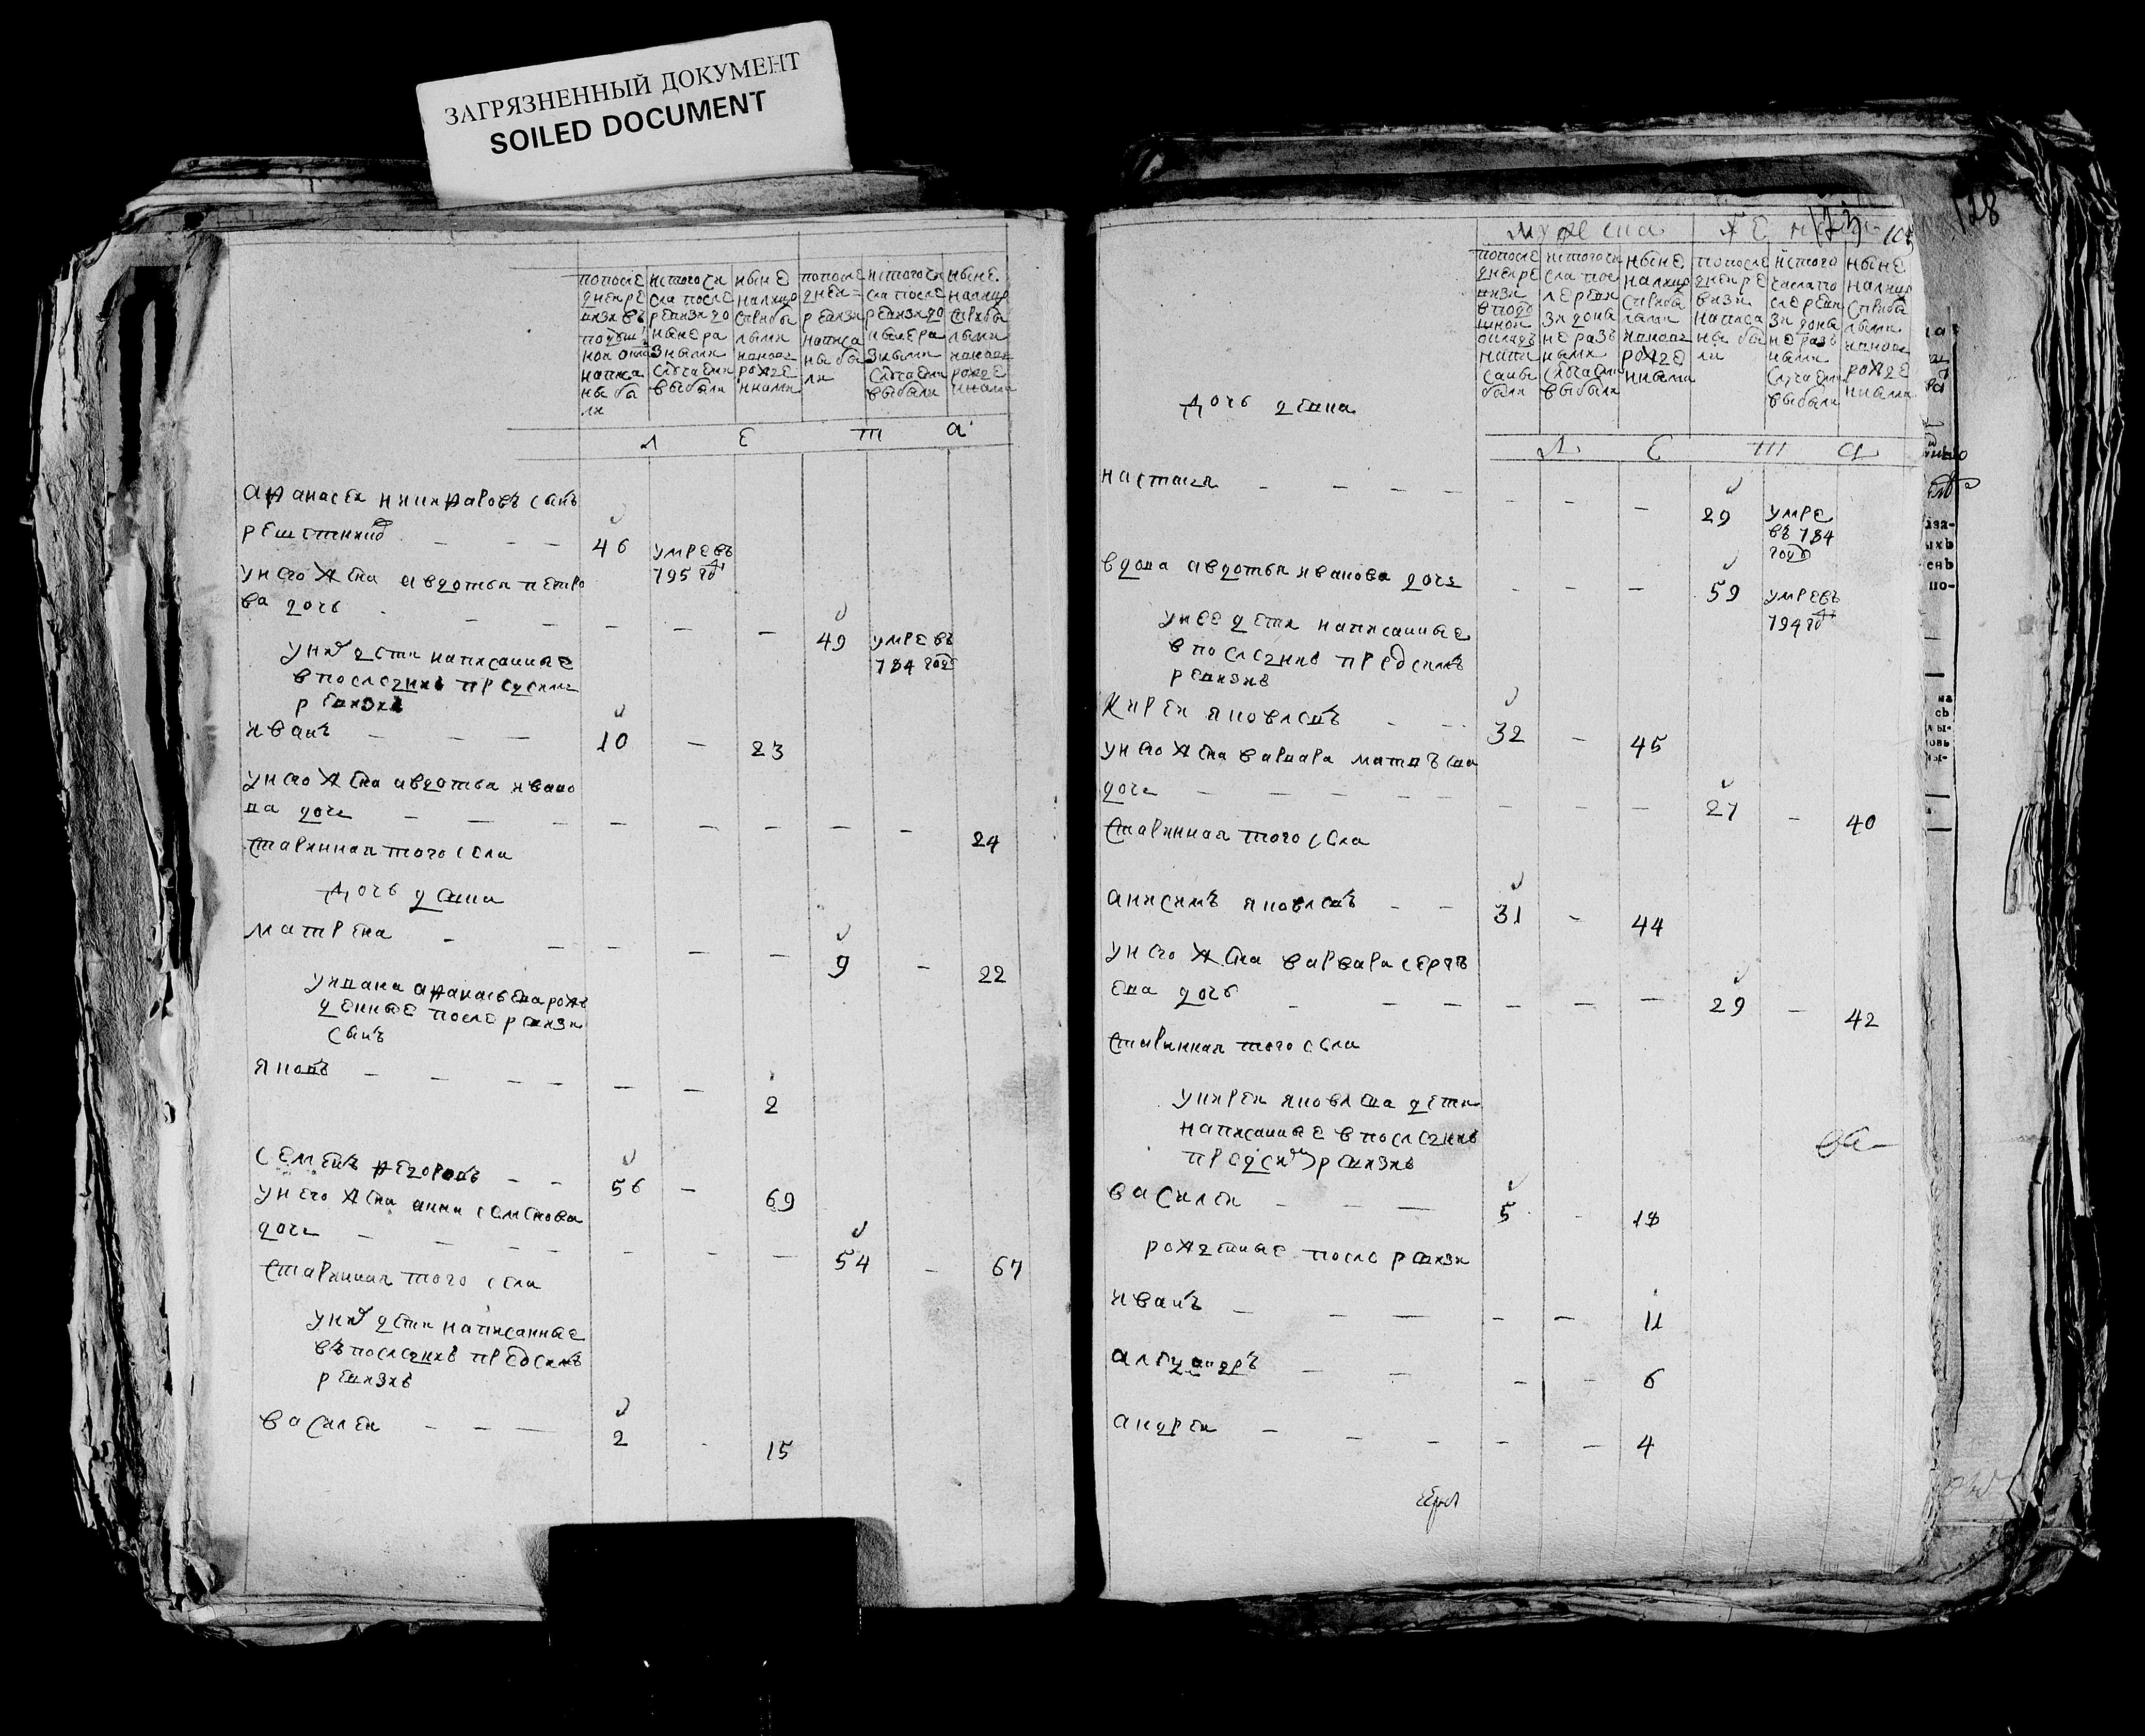 ЗАГРЯЗНЕННЫЙ ДОКУМЕНТ
SOILED DOCUMENT
попосле
дней ре
визи въ
подуш
ной окла
написа
ны бы
ли
истого чи
сла после
ревизи до
ныне ра
зными
случаеми
выбыли
ныне
налицо
сприбы
лыми
ивновь
рожде
нными
попосле
дней
ревизи
написа
ны бы
ли
истого чи
сла после
ревизи до
ныне ра
зными
случаеми
выбыли
ныне
налицо
сприбы
лыми
ивновь
рожде
нными
л е т а
афанасей никифоровъ сынъ
46 умре въ
795 год
унего жена авдотья петро
ва дочь
49 умре въ
784 году
уних дети написанные
впоследней пред сим
ревизиі
иванъ 10 23
унего жена авдотья ивано
ва дочь
24
старинная того села
дочь девка
матрена 9 22
уивана афанасьева рож
денные после ревизи
сынъ
яковъ 2
семенъ федоровъ 56 69
унего жена анна семенова
дочь 54 67
старинная того села
уних дети написанные
въпоследней пред симъ
ревизиі
василей 2 15
128
123
мужеска женска
попосле
дней ре
визи
в поду
шной
окладъ
напи
саны
были
исто го чи
сла пос
ле реви
зи доны
не разъ
ными
случаеми
выбыли
ныне
налицо
сприбы
лыми
ивновь
рожде
нными
попосле
дней ре
визи
написа
ны бы
ли
исто го
числа по
сле реви
зи доны
не разъ
ными
случаеми
выбыли
ныне
налицо
сприбы
лыми
ивновь
рожде
нными
дочь девка
л е т а
настасья 29 умре
въ 784
году
вдова авдотья иванова дочь 59 умре въ
794 год
унее дети написанные
в последней пред симъ
ревизиі
кирей яковлевъ 32 45
унего жена варвара матвѣева
дочь 27 40
старинная того села
анисимъ яковлевъ 31 44
унего жена варвара сергѣ
ева дочь 29 42
старинная того села
укирея яковлева дети
написанные в последней
пред сим ревизиі
василей 5 18
рожденные после ревизи
иванъ 11
александръ 6
андрей 4